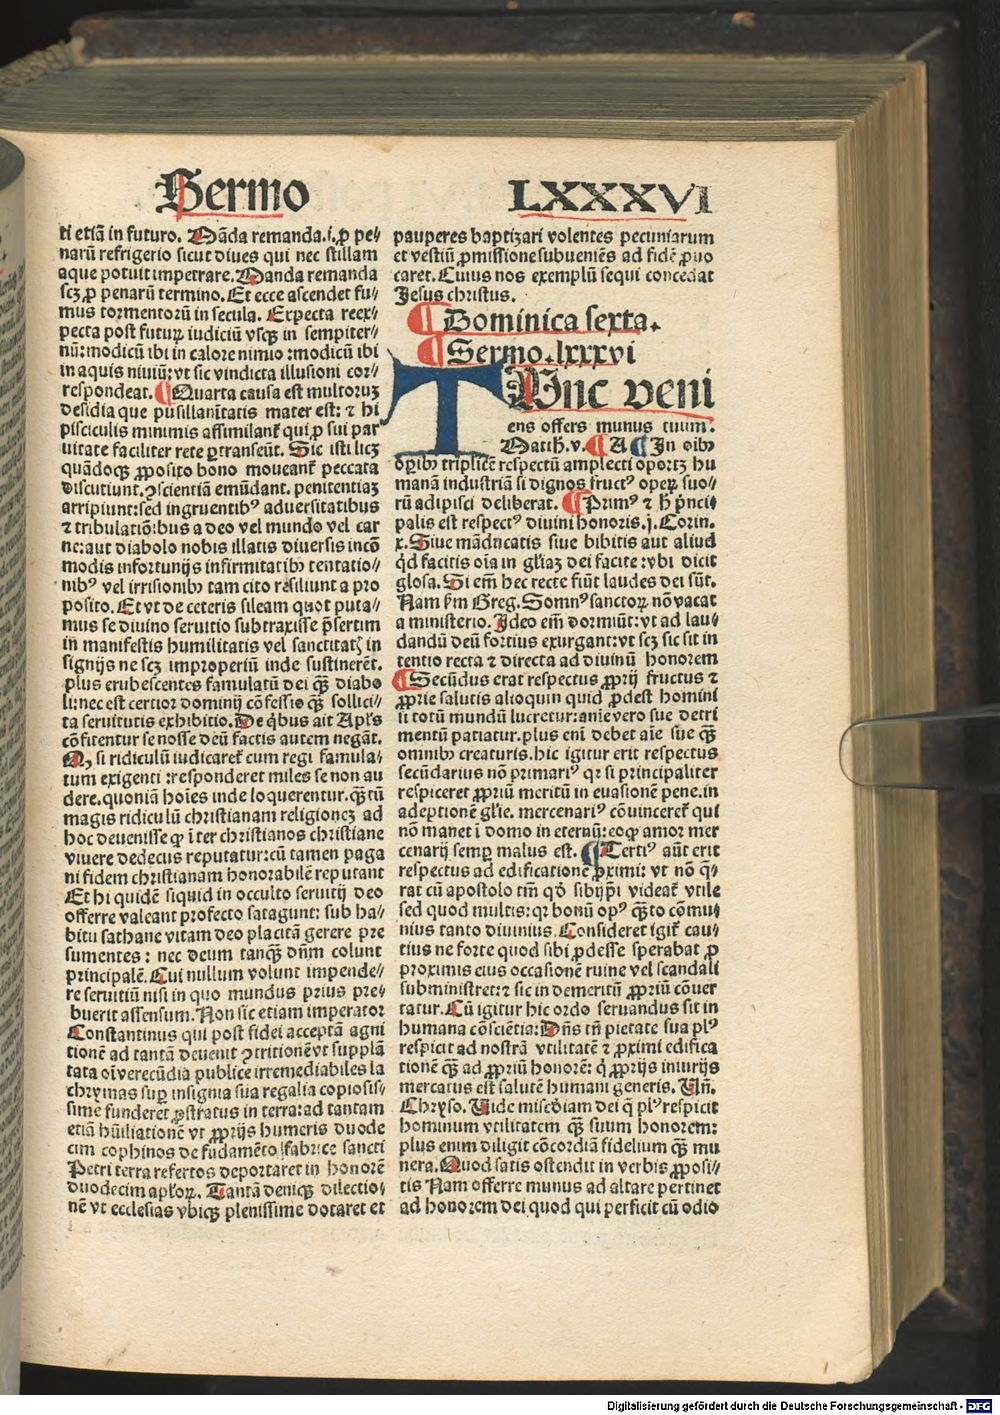 Sermo LXXXVI
ti etiā in futuro. Māda remanda .i. ꝓ pe⸗
narū refrigerio sicut diues qui nec stillam
aque potuit impetrare. Manda remanda
scꝫ ꝓ penarū termino. Et ecce ascendet fu⸗
mus tormentorū in secula. Expecta reex⸗
pecta post futuꝝ iudiciū vsqꝫ in sempiter⸗
nū: modicū ibi in calore nimio: modicū ibi
in aquis niuiū: vt sic vindicta illusioni cor⸗
respondeat. ¶ Quarta causa est multoruꝫ
desidia que pusillanītatis mater est: ⁊ hi
pisciculis minimis assimilant᷑ qui ꝓ sui par
uitate faciliter rete ꝑtranseūt. Sic isti licꝫ
quādoqꝫ ꝓposito bono moueant᷑ peccata
discutiunt. ꝯscientiā emūdant. penitentiaꝫ
arripiunt: sed ingruentibꝰ aduersitatibus
⁊ tribulatiōibus a deo vel mundo vel car
ne: aut diabolo nobis illatis diuersis incō
modis infortunijs infirmitatibꝫ tentatio⸗
nibꝰ vel irrisionibꝫ tam cito resiliunt a pro
posito. Et vt de ceteris sileam quot puta⸗
mus se diuino seruitio subtraxisse p̄sertim
in manifestis humilitatis vel sanctitatꝭ in
signijs ne scꝫ improperiū inde sustinerēt.
plus erubescentes famulatū dei qꝫ̄ diabo
li: nec est certior dominij cōfessio qꝫ̄ sollici⸗
ta seruitutis exhibitio. De q̇bus ait Apl̄s
cōfitentur se nosse deū factis autem negāt.
si ridiculū iudicaret᷑ cum regi famula⸗
tum exigenti: responderet miles se non au
dere. quoniā hoīes inde loquerentur. qꝫ̄tū
magis ridiculū christianam religioneꝫ ad
hoc deuenisse ꝙ īter christianos christiane
viuere dedecus reputatur: cū tamen paga
ni fidem christianam honorabilē reputant
Et hi quidē siquid in occulto seruitij deo
offerre valeant profecto satagunt: sub ha⸗
bitu sathane vitam deo placitā gerere pre
sumentes: nec deum tanqꝫ̄ dn̄m colunt
principalē. Cui nullum volunt impende⸗
re seruitiū nisi in quo mundus prius pre⸗
buerit assensum. Non sic etiam imperator
Constantinus qui post fidei acceptā agni
tionē ad tantā deuenit ꝯtritionē vt supplā
tata oī verecūdia publice irremediabiles la
chrymas suꝑ insignia sua regalia copiosis⸗
sime funderet ꝓstratus in terra: ad tantam
etiā hūiliationē vt ꝓprijs humeris duode
cim cophinos de fudamēto fabrice sancti
Petri terra refertos deportaret in honorē
duodecim apl̄oꝝ. Tantā deniqꝫ dilectio⸗
nē vt ecclesias vbiqꝫ plenissime dotaret et
pauperes baptizari volentes pecuniarum
et vestiū ꝓmissione subueniēs ad fidē ꝓuo
caret. Cuius nos exemplū sequi concedat
Jesus christus.
¶ Dominica sexta.
¶ Sermo .lxxxvi
TUnc veni
ens offers munus tuum.
Matth. v. ¶ A ¶ In oībꝫ
oꝑibꝫ triplicē respectū amplecti oportꝫ hu
manā industriā si dignos fructꝰ operꝝ suo⸗
rū adipisci deliberat. ¶ Primꝰ ⁊ h̄ p̄nci⸗
palis est respectꝰ diuini honoris. j. Corin.
x. Siue māducatis siue bibitis aut aliud
qd̓ facitis oīa in gl̄iaꝫ dei facite: vbi dicit
glosa. Si em̄ hec recte fiūt laudes dei sūt.
Nam ẜm Greg. Somnꝰ sanctoꝝ nō vacat
a ministerio. Ideo em̄ dormiūt: vt ad lau⸗
dandū deū fortius exurgant: vt scꝫ sic sit in
tentio recta ⁊ directa ad diuinū honorem
¶ Secūdus erat respectus ꝓprij fructus ⁊
ꝓprie salutis alioquin quid ꝓdest homini
si totū mundū lucretur: aīe vero sue detri
mentū patiatur. plus eni debet aīe sue qꝫ̄
omnibꝫ creaturis. hic igitur erit respectus
secūdarius nō primariꝰ qꝛ si principaliter
respiceret ꝓpriū meritū in euasionē pene. in
adeptionē gl̄ie. mercenariꝰ cōuinceret᷑ qui
nō manet ī domo in eternū: eo ꝙ amor mer
cenarij semꝑ malus est. ¶ Tertiꝰ aūt erit
respectus ad edificationē ꝓximi: vt nō q̄⸗
rat cū apostolo tm̄ qd̓ sibijp̄i videat᷑ vtile
sed quod multis: qꝛ bonū opꝰ qꝫ̄to cōmu⸗
nius tanto diuinius. Consideret igit᷑ cau⸗
tius ne forte quod sibi ꝓdesse sperabat ꝓ
proximis eius occasionē ruine vel scandali
subministret: ⁊ sic in demeritū ꝓpriū cōuer
tatur. Cū igitur hic ordo seruandus sit in
humana cōsciētia: Dn̄s tn̄ pietate sua plꝰ
respicit ad nostrā vtilitatē ⁊ ꝓximi edifica
tionē qꝫ̄ ad ꝓpriū honorē: q̇ ꝓprijs iniurijs
mercatus est salutē humani generis. Vn̄.
Chryso. Vide misc̄diam dei q̄ plꝰ respicit
hominum vtilitatem qꝫ̄ suum honorem:
plus enim diligit cōcordiā fidelium qꝫ̄ mu
nera. Quod satis ostendit in verbis ꝓposi⸗
tis Nam offerre munus ad altare pertinet
ad honorem dei quod qui perficit cū odio
Digitalisierung gefördert durch die Deutsche Forschungsgemeinschaft - DFG